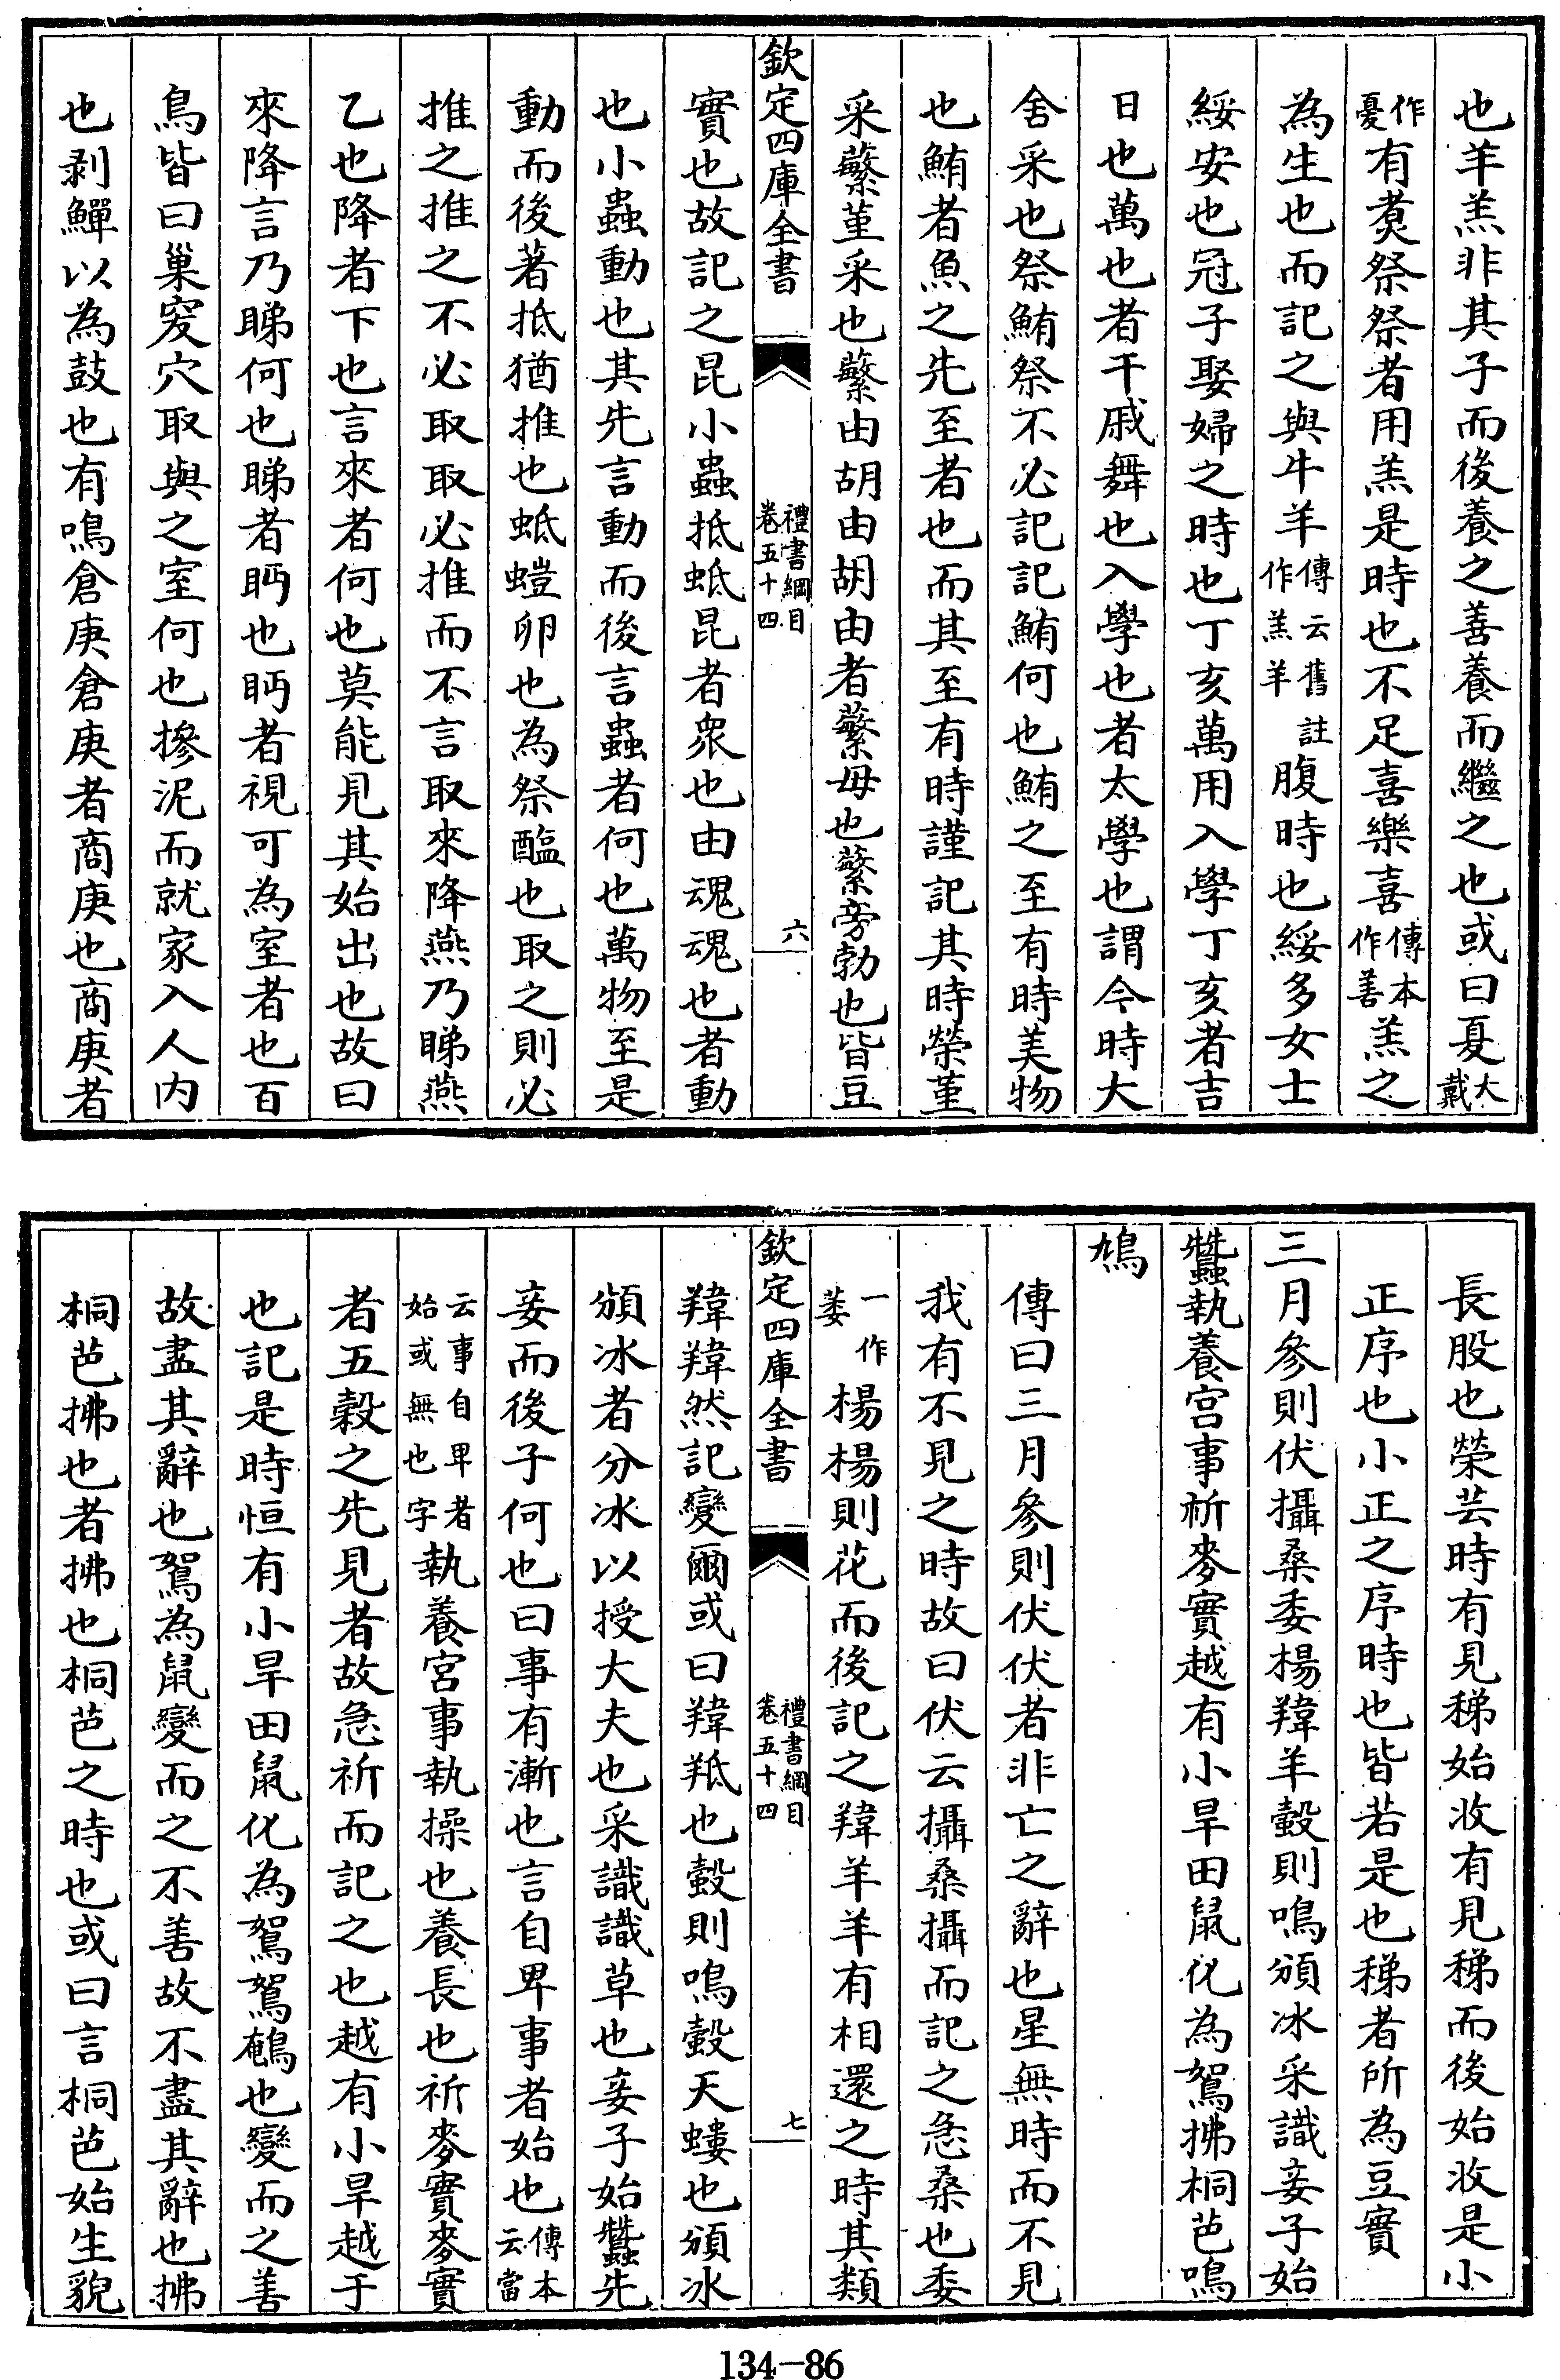 也羊羔非其子而後養之善養而繼之也或曰夏大戴
作憂有煮祭祭者用羔是時也不足喜樂喜傳本作善羔之
為生也而記之與牛羊傳云舊註作羔羊腹時也綏多女士
綏安也冠子娶婦之時也丁亥萬用入學丁亥者吉
日也萬也者干戚舞也入學也者太學也謂今時大
舍采也祭鮪祭不必記記鮪何也鮪之至有時美物
也鮪者魚之先至者也而其至有時謹記其時榮菫
采蘩菫采也蘩由胡由胡由者蘩母也蘩旁勃也皆豆
欽定四庫全書
禮書綱目
卷五十四
六
實也故記之昆小蟲抵蚳昆者衆也由魂魂也者動
也小蟲動也其先言動而後言蟲者何也萬物至是
動而後著抵猶推也蚳螘卵也為祭醢也取之則必
推之推之不必取取必推而不言取來降燕乃睇燕
乙也降者下也言來者何也莫能見其始出也故曰
來降言乃睇何也睇者眄也眄者視可為室者也百
鳥皆曰巢窔穴取與之室何也摻泥而就家入人内
也剥鱓以為鼓也有鳴倉庚倉庚者商庚也商庚者
長股也榮芸時有見稊始收有見稊而後始收是小
正序也小正之序時也皆若是也稊者所為豆實
三月參則伏攝桑委楊羵羊螜則鳴頒冰采識妾子始
蠶執養宫事祈麥實越有小旱田鼠化為鴽拂桐芭鳴
鳩
傳曰三月參則伏伏者非亡之辭也星無時而不見
我有不見之時故曰伏云攝桑攝而記之急桑也委
一作萎楊楊則花而後記之羵羊羊有相還之時其類
欽定四庫全書
禮書綱目
卷五十四
七
羵羵然記變爾或曰羵羝也螜則鳴螜天螻也頒冰
頒冰者分冰以授大夫也采識識草也妾子始蠶先
妾而後子何也曰事有漸也言自卑事者始也傳本云當
云事自卑者始或無也字執養宫事執操也養長也祈麥實麥實
者五穀之先見者故急祈而記之也越有小旱越于
也記是時恒有小旱田鼠化為鴽鴽鵪也變而之善
故盡其辭也鴽為鼠變而之不善故不盡其辭也拂
桐芭拂也者拂也桐芭之時也或曰言桐芭始生貌
134-86